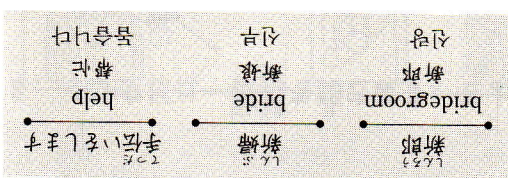 しんろう
新郎
bridegroom
新郎
신랑
しんぷ
新婦
bride
新娘
신부
てつだ
手伝いをします
help
帮忙
돕습니다